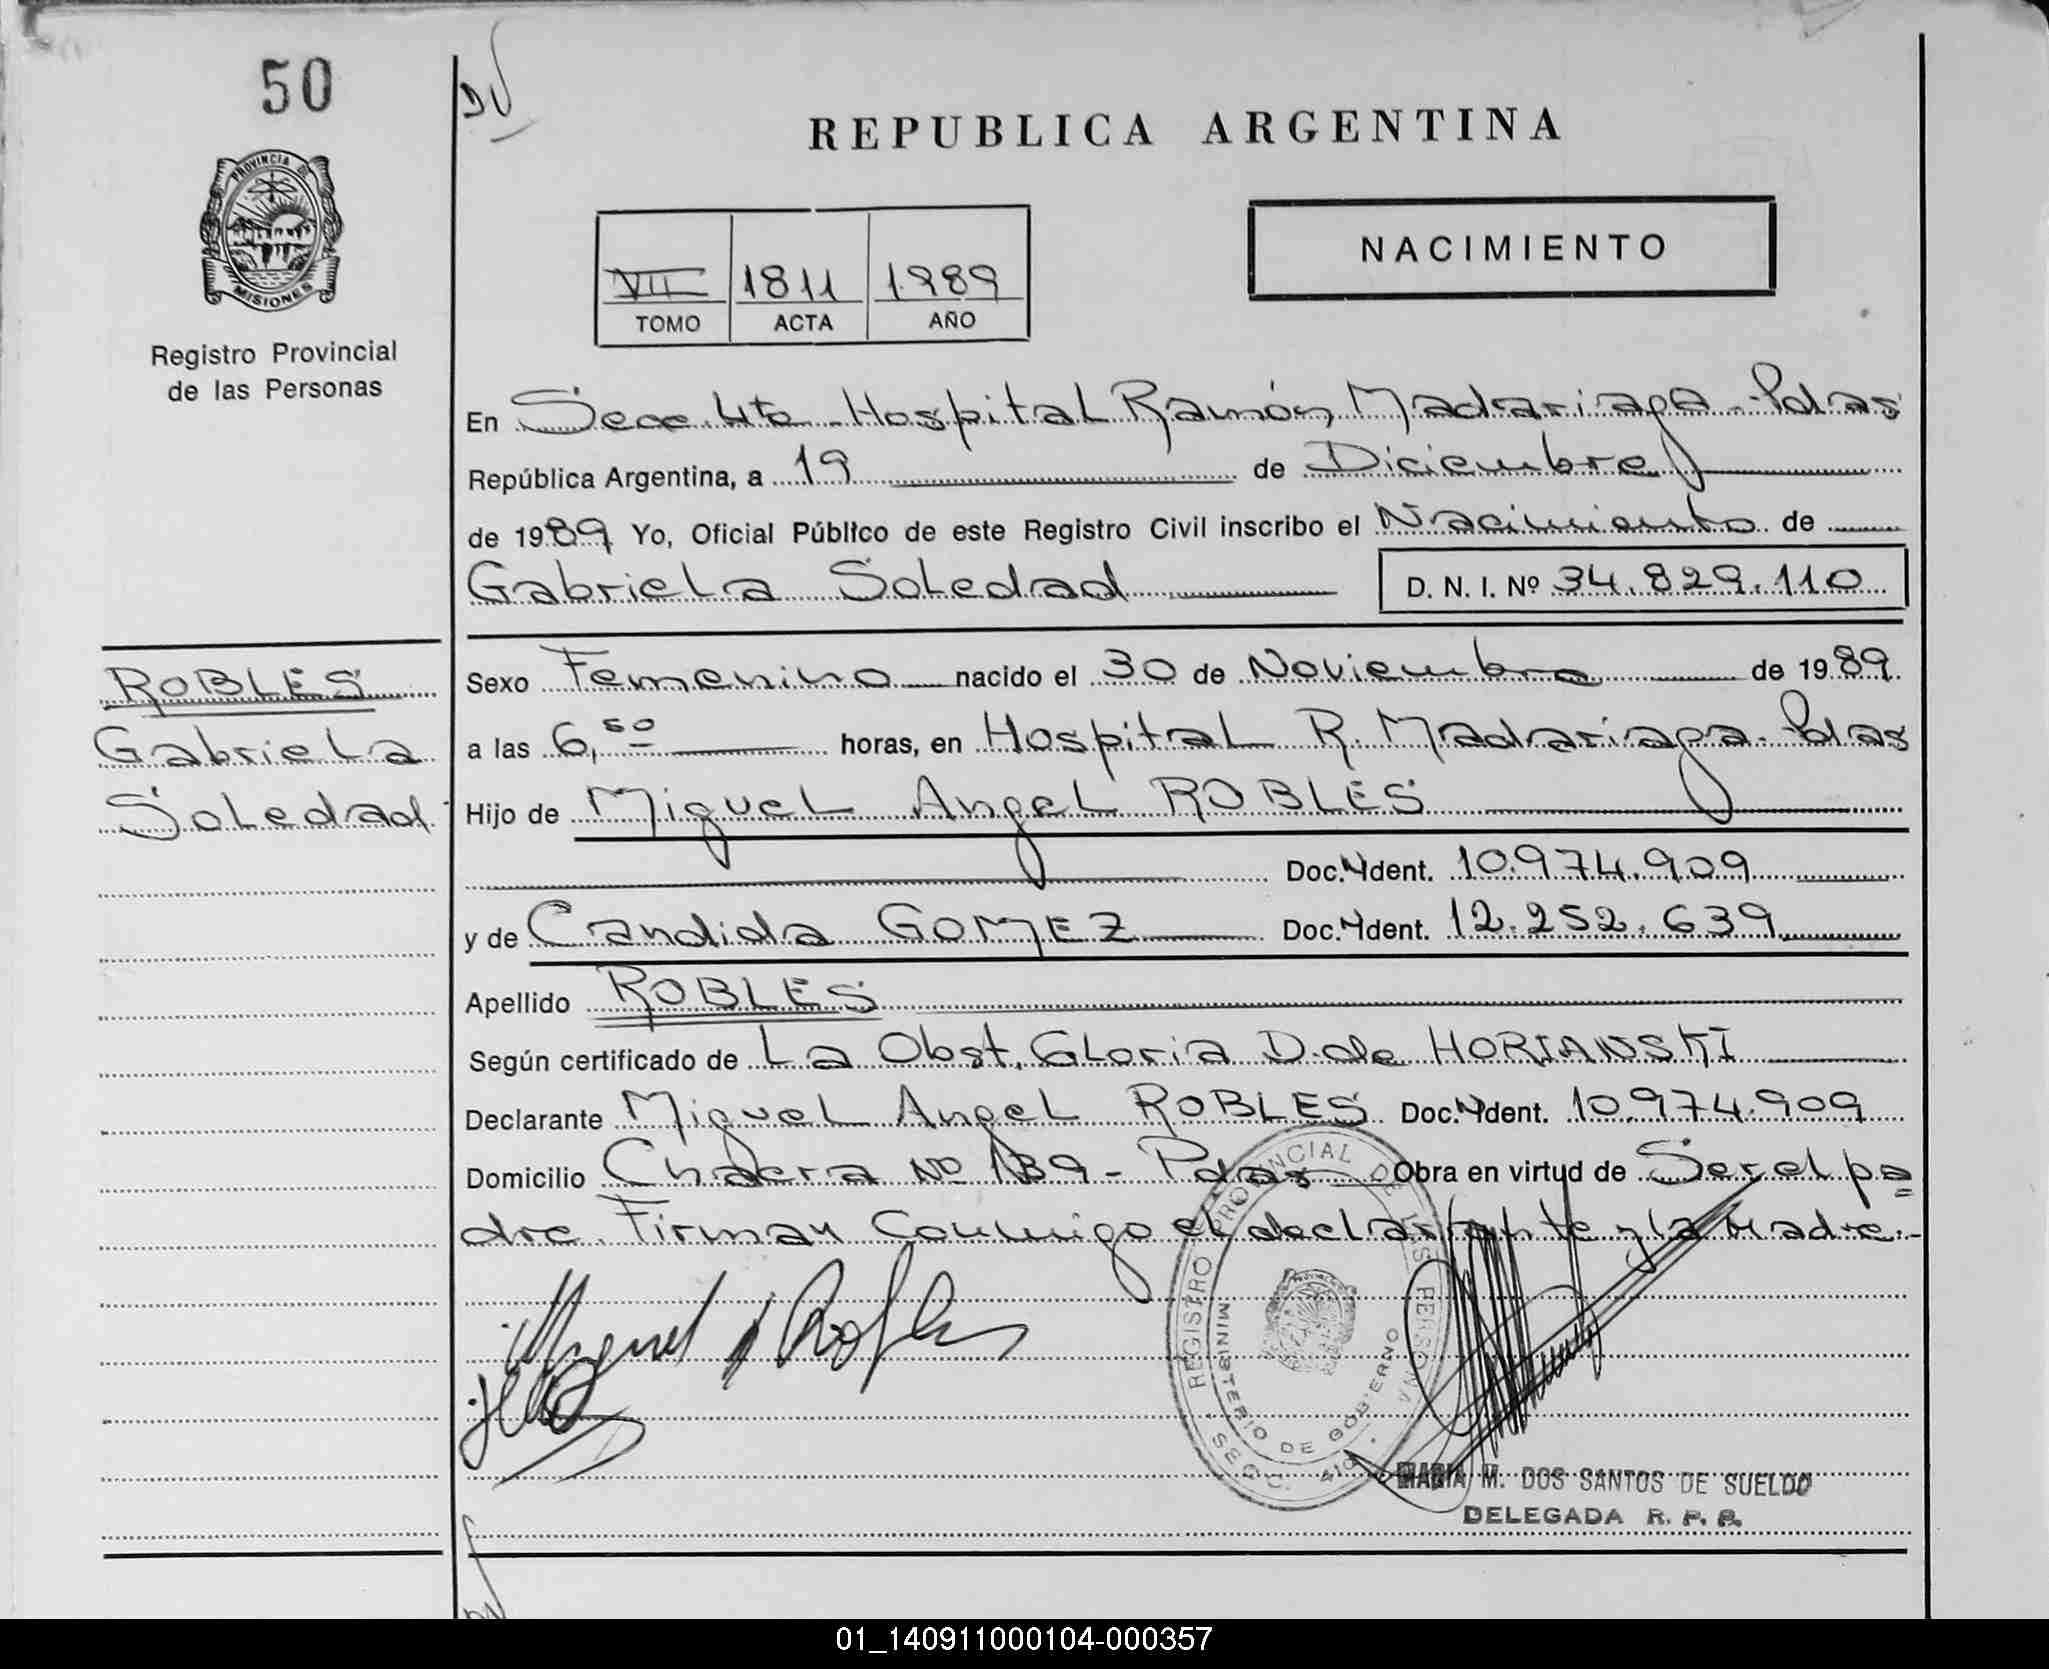 50
DV
REPUBLICA ARGENTINA
PROVINCIA DE
MISIONES
Registro Provincial
de las Personas
NACIMIENTO
VII 1811 1989
TOMO ACTA AÑO
En Secc. 4ta. Hospital Ramón Madariaga - Pdas
República Argentina, a 19 de Diciembre
de 1989 Yo, Oficial Público de este Registro Civil inscribo el Nacimiento de
Gabriela Soledad D. N. I. Nº 34.829.110
ROBLES
Gabriela
Soledad
Sexo Femenino nacido el 30 de Noviembre de 1989
a las 6,50 horas, en Hospital R. Madariaga - Pdas
Hijo de Miguel Angel ROBLES
Doc. Ident. 10.974.909
y de Candida GOMEZ Doc. Ident. 12.252.639
Apellido ROBLES
Según certificado de La Obst. Gloria D. de HORIANSKI
Declarante Miguel Angel ROBLES Doc. Ident. 10.974.909
Domicilio Chacra Nº 139 - Pdas Obra en virtud de Ser el pa
dre. Firman Conmigo el declarante y la Madre.-
Miguel A Robles
REGISTRO PROVINCIAL DE LAS PERSONAS
MINISTERIO DE GOBIERNO
SECC. 4ta.
MARIA M. DOS SANTOS DE SUELDO
DELEGADA R. P. P.
01_140911000104-000357